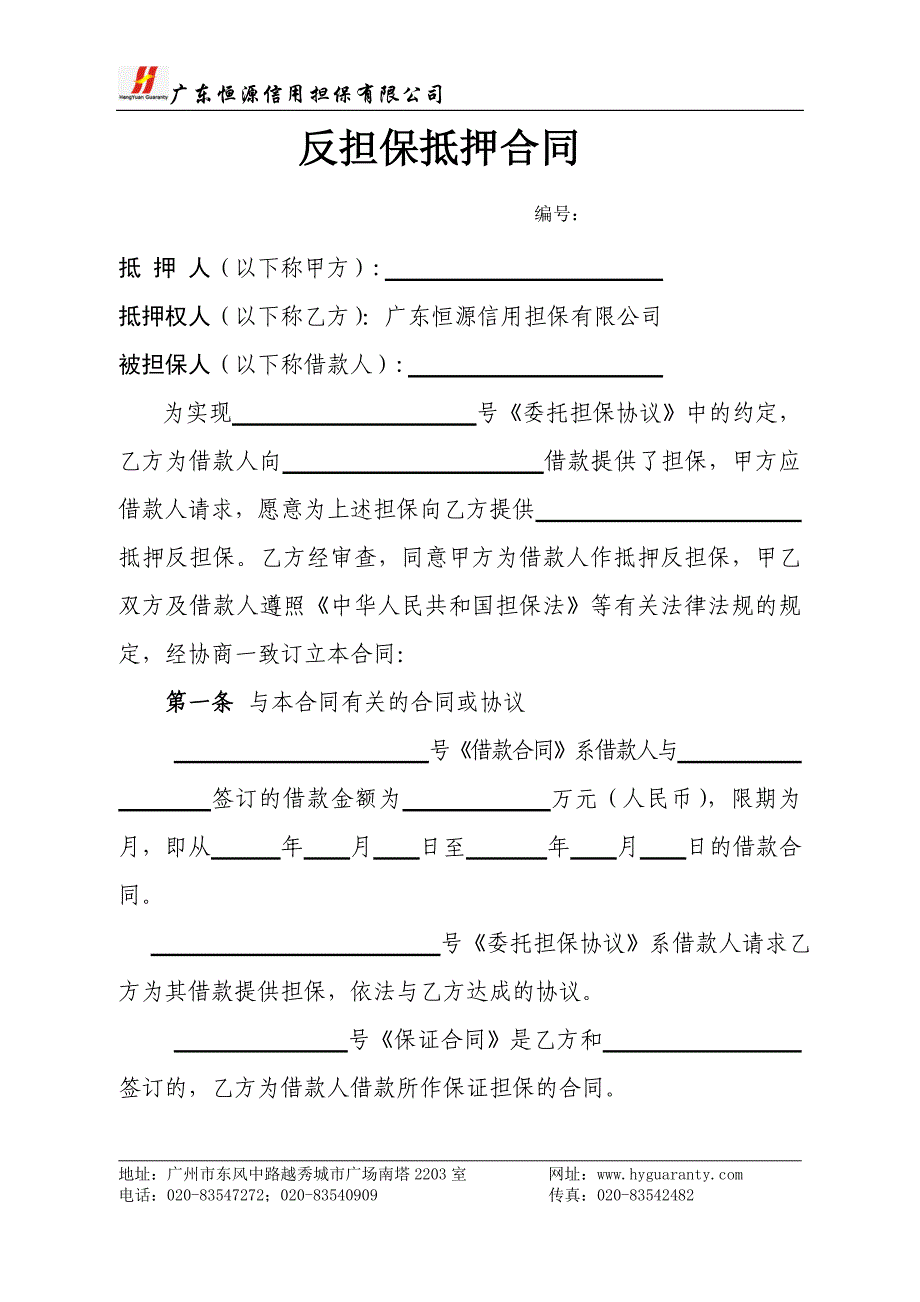 HengYuan Guaranty
广东恒源信用担保有限公司
反担保抵押合同
编号：
抵 押 人（以下称甲方）：____________
抵押权人（以下称乙方）：广东恒源信用担保有限公司
被担保人（以下称借款人）：____________
为实现____________号《委托担保协议》中的约定，
乙方为借款人向____________借款提供了担保，甲方应
借款人请求，愿意为上述担保向乙方提供____________
抵押反担保。乙方经审查，同意甲方为借款人作抵押反担保，甲乙
双方及借款人遵照《中华人民共和国担保法》等有关法律法规的规
定，经协商一致订立本合同：
第一条 与本合同有关的合同或协议
____________号《借款合同》系借款人与______
____签订的借款金额为_______万元（人民币），限期为
月，即从___年__月__日至___年__月__日的借款合
同。
____________号《委托担保协议》系借款人请求乙
方为其借款提供担保，依法与乙方达成的协议。
________号《保证合同》是乙方和_________
签订的，乙方为借款人借款所作保证担保的合同。
地址：广州市东风中路越秀城市广场南塔 2203 室 网址：www.hyguaranty.com
电话：020-83547272；020-83540909 传真：020-83542482